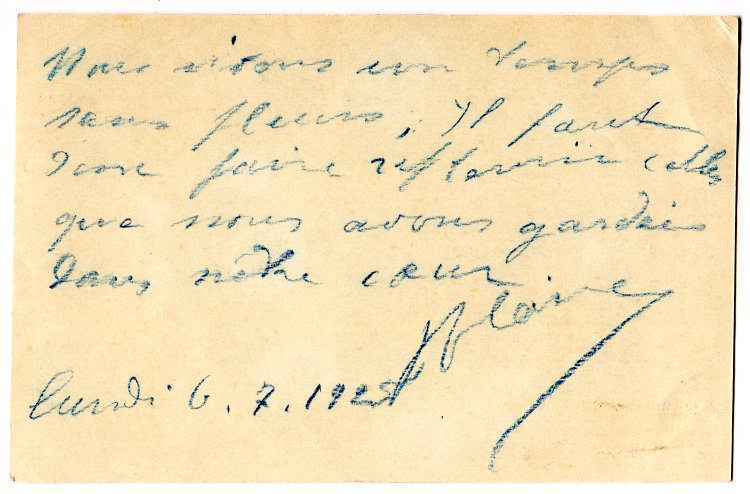 Nous vivons un temps
sans fleurs, Il faut
donc faire refleurir celles
que nous avons gardées
dans nôtre cœur
lundi 6.7.1925